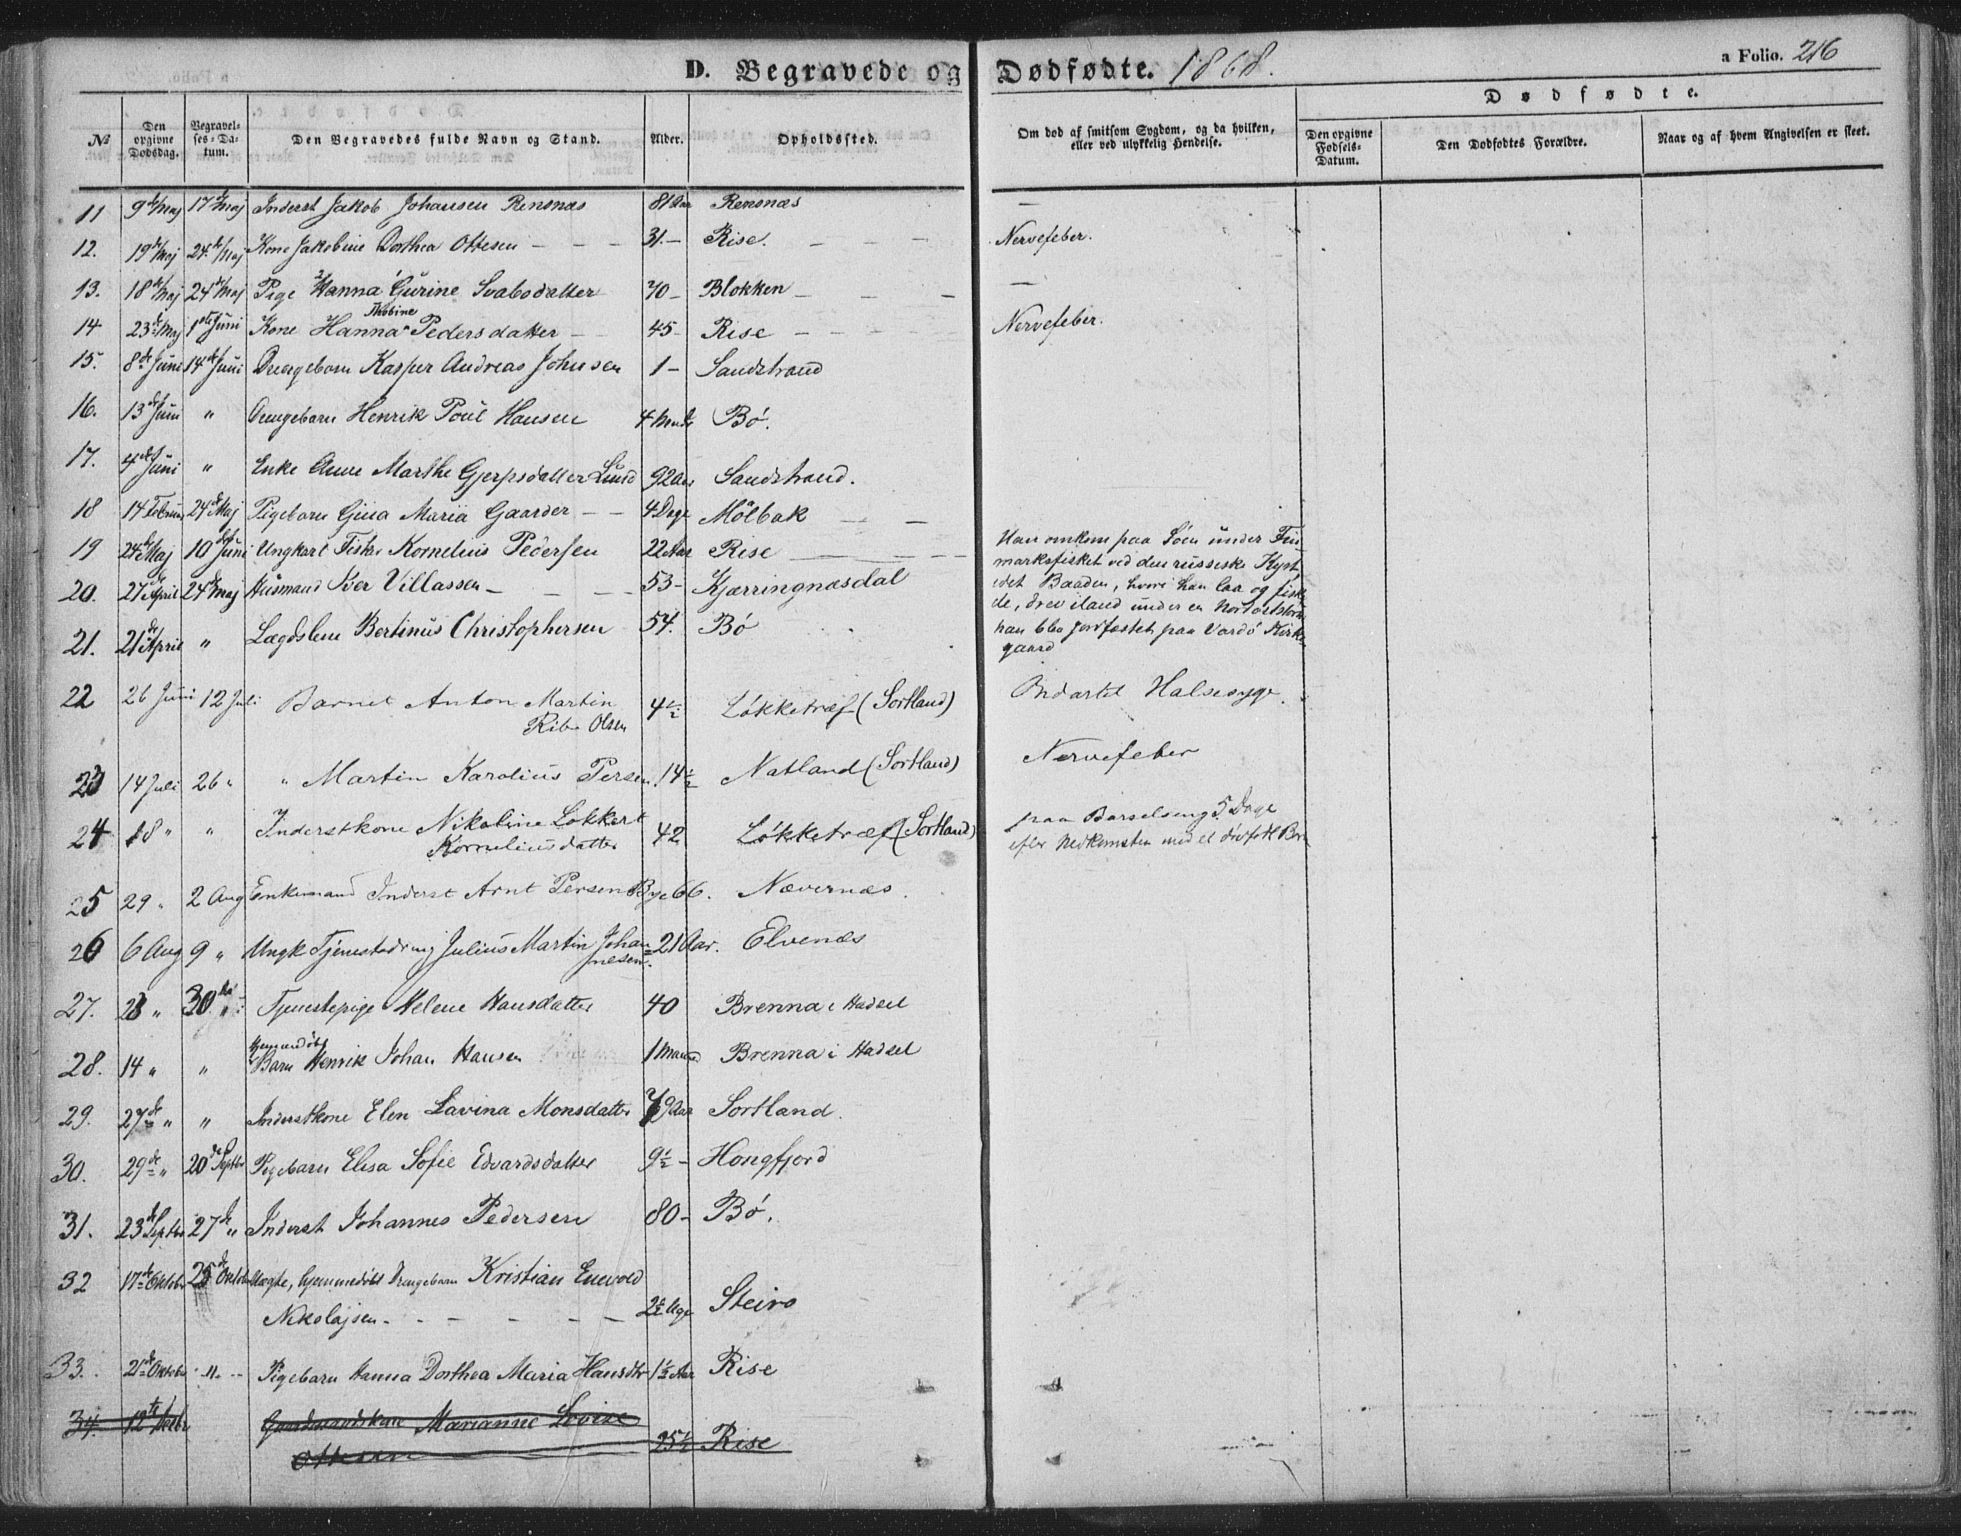 D. Begravede og Dødfødte. 1868.
a Folio. 216
Dødfødte.
No
Den opgivne Dødsdag.
Begravelses-Datum.
Den Begravedes fulde Navn og Stand.
Alder.
Opholdssted.
Om død af smitsom Sygdom, og da hvilken, eller ved ulykkelig Hendelse.
Den opgivne Fødsels-Datum.
Den Dødfødtes Forældre.
Naar og af hvem Angivelsen er skeet.
11 9de Maj 17de Maj Inderst Jakob Johansen Rensnæs 81 Aar Rensnæs —
12. 19de Maj 24de Maj Kone Jakobine Dorthea Ottesen - - - 31.- Rise. - - - Nervefeber.
13. 18de Maj 24de Maj Pige Hanna Gurine Svabodatter 70- Blokken - - - —
14 23de Maj 1ste Juni Kone Hanna Pedersdatter - 45- Rise - Nervefeber.
15. 8de Juni 14de Juni Drengebarn Kasper Andreas Johnsen 1- Sandstrand
16. 13de Juni " Drengebarn Henrik Poul Hansen 4 Mndr Bø.
17. 4de Juni " Enke Anne Marthe Gjerpsdatter Lund 92 Aar Sandstrand.
18 14 Februar 24de Maj Pigebarn Gina Maria Gaarder - - 4 Dage Mølbak - -
19 24de Maj 10de Juni Ungkarl Fisker Kornelius Pedersen 22 Aar Rise - - -
Han omkom paa Søen under Fin-
marksfisket ved den russiske Kyst
idet Baaden, hvori han laa og fiske-
de, drev iland under en Nordostsstorm
han blev jordfæstet paa Vardø Kirke-
gaard
20. 27de April 24de Maj Husmand Iver Villassen - - - 53- Kjærringnæsdal
21. 21de April " Lægdslem Bertinus Christophersen 54. Bø
22 26 Juni 12 Juli Barnet Anton Martin
Ribe Olsen 4½ Løkketræf (Sortland) Ondartet Halsesyge.
23 14 Juli 26 " " Martin Karolius Persen 14½ Natland (Sortland) Nervefeber
24 18 " " Inderstkone Nikoline Lokkert
Korneliusdatter 42 Løkketræf (Sortland) paa Barselseng 5 Dage
efter Nedkomsten med et dødfødt Barn
25 29 " 2 Aug Enkemand Inderst Arnt Persen Bye 66. Nævernæs.
26 6 Aug 9 " Ungk Tjenestedreng Julius Martin Johan-
nesen. 21 Aar. Elvenæs
27. 23 " 30 " Tjenestepige Helene Hansdatter 40 Brenna i Hadsel
28. 14 " " hjemmedøbt Barn Henrik Johan Hansen 1 Maaned Brenna i Hadsel
29. 27de " " Inderstkone Elen Lavina Monsdatter 79 Aar Sortland.
30. 29de " 20de Septbr Pigebarn Elisa Sofie Edvardsdatter 9½ - Hongfjord
31. 23de Septbr 27de " Inderst Johannes Pedersen 80- Bø.
32 17de Oktobr 25de Oktobr Uægte, hjemmedøbt Drengebarn Kristian Enevold
Nikolajsen - - - - - 2½ Uge Steiro
33. 21de Oktobr " Pigebarn Hanna Dorthea Maria Hansdtr 1½ Aar Rise
34. 12te Gaardmandskone Marianne Lovise
Ottesen 25½ Rise